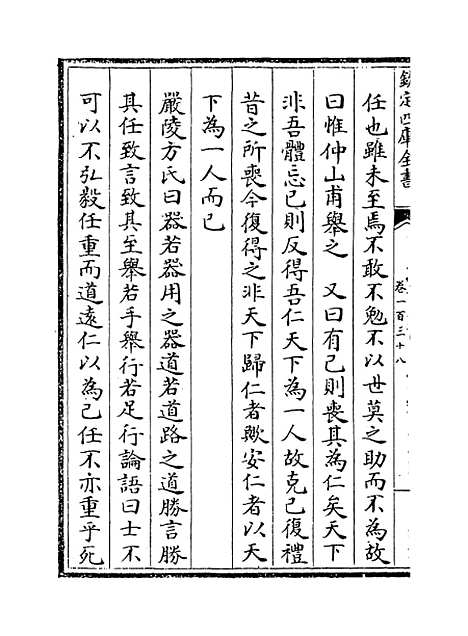 欽定四庫全書
卷一百三十八
任也雖未至焉不敢不勉不以世莫之助而不為故
曰惟仲山甫舉之　又曰有己則喪其為仁矣天下
非吾體忘己則反得吾仁天下為一人故克己復禮
昔之所喪今復得之非天下歸仁者歟安仁者以天
下為一人而已
嚴陵方氏曰器若器用之器道若道路之道勝言勝
其任致言致其至舉若手舉行若足行論語曰士不
可以不弘毅任重而道遠仁以為己任不亦重乎死